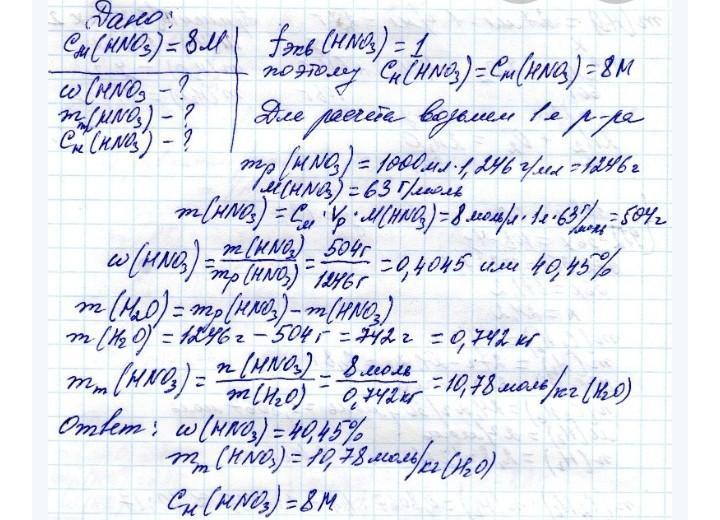 Дано:
Cм(HNO3) = 8М
ω(HNO3 - ?
mm(HNO3) - ?
Cн(HNO3) - ?
fэкв(HNO3) = 1
поэтому Cн(HNO3) = Cм(HNO3) = 8М
Для расчета возьмем 1л р-ра
mр(HNO3) = 1000мл·1,246г/мл = 1246г
М(HNO3) = 63г/моль
m(HNO3) = Cм·Vр·М(HNO3) = 8моль/л·1л·63г/моль = 504г
ω(HNO3) = m(HNO3)/mр(HNO3) = 504г/1246г = 0,4045 или 40,45%
m(H2O) = mр(HNO3) - m(HNO3)
m(H2O) = 1246г - 504г = 742г = 0,742кг
mm(HNO3) = n(HNO3)/m(H2O) = 8моль/0,742кг = 10,78моль/кг(H2O)
Ответ: ω(HNO3) = 40,45%
mm(HNO3) = 10,78моль/кг(H2O)
Cн(HNO3) = 8М